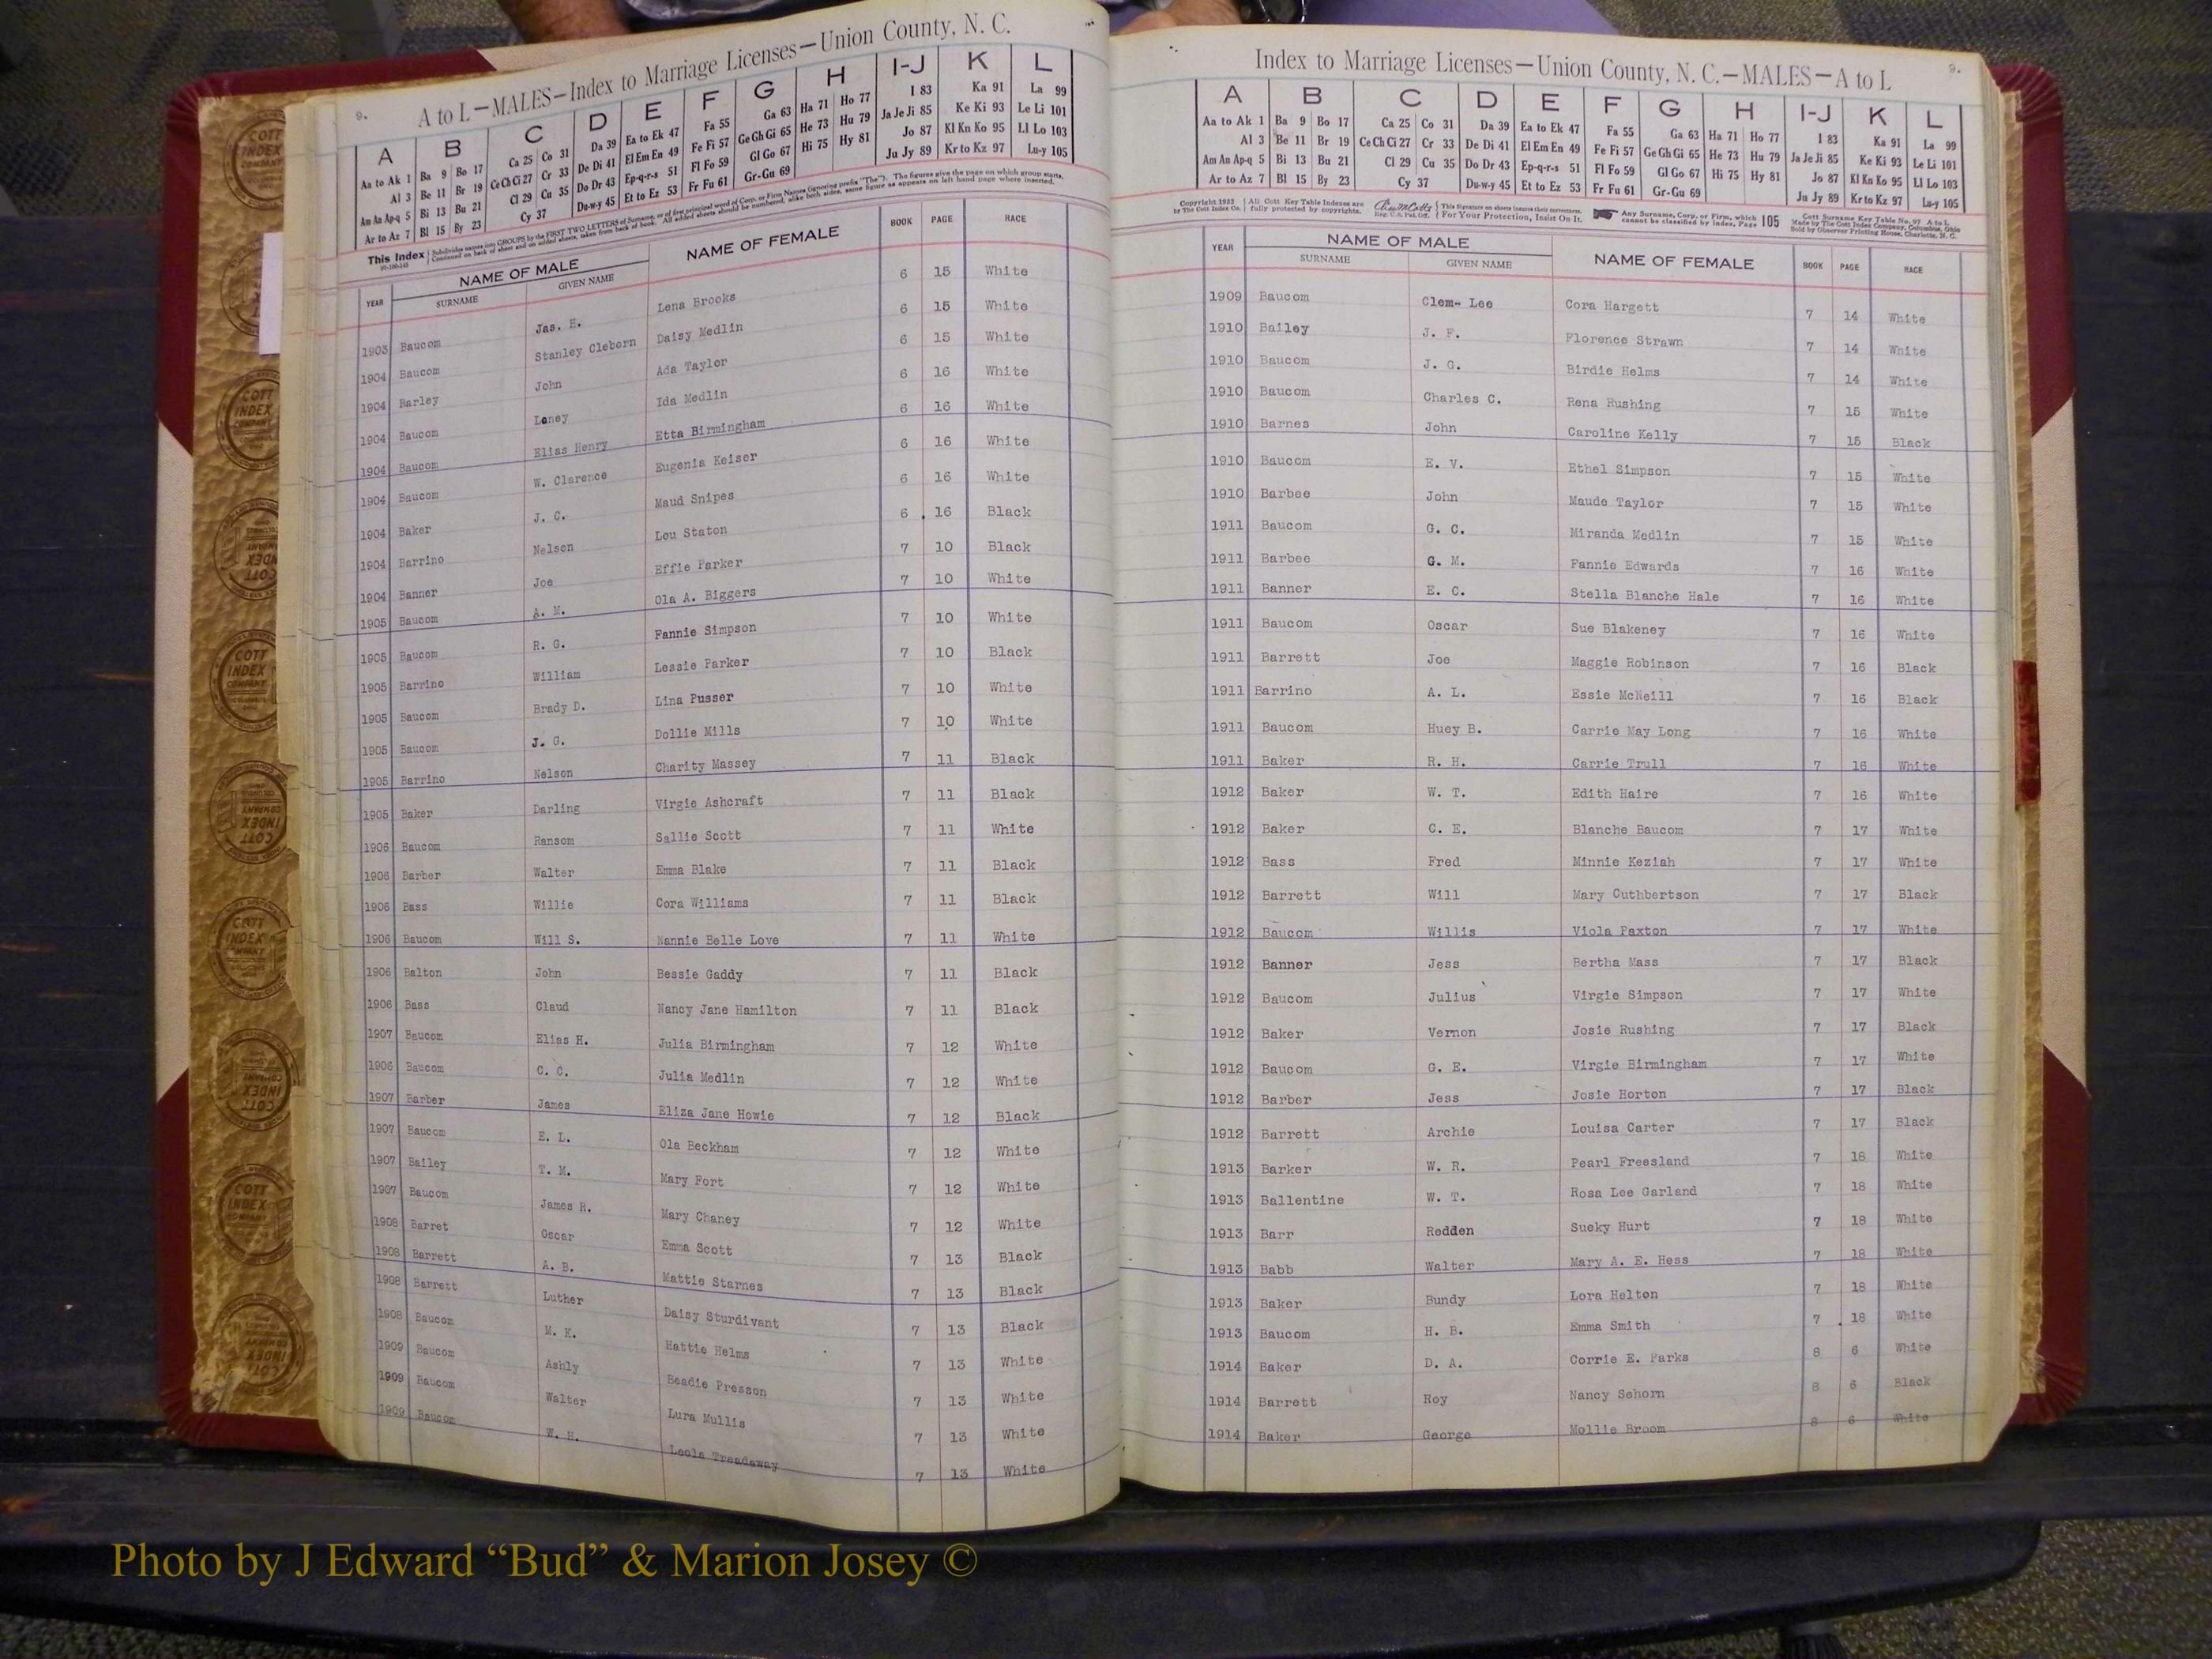 9.
A to L—MALES—Index to Marriage Licenses—Union County, N. C.
A B C D E F G H I-J K L
Aa to Ak 1 Ba 9 Bo 17 Ca 25 Co 31 Da 39 Ea to Ek 47 Fa 55 Ga 63 Ha 71 Ho 77 I 83 Ka 91 La 99
Al 3 Be 11 Br 19 Ce Ch Ci 27 Cr 33 De Di 41 El Em En 49 Fe Fi 57 Ge Gh Gi 65 He 73 Hu 79 Ja Je Ji 85 Ke Ki 93 Le Li 101
Am An Ap-q 5 Bi 13 Bu 21 Cl 29 Cu 35 Do Dr 43 Ep-q-r-s 51 Fl Fo 59 Gl Go 67 Hi 75 Hy 81 Jo 87 Kl Kn Ko 95 Ll Lo 103
Ar to Az 7 Bl 15 By 23 Cy 37 Du-w-y 45 Et to Ez 53 Fr Fu 61 Gr-Gu 69 Ju Jy 89 Kr to Kz 97 Lu-y 105
This Index Subdivides names into GROUPS by the FIRST TWO LETTERS of Surname, or of first principal word of Corp. or Firm Names (ignoring prefix "The"). The figures give the page on which group starts.
Continued on back of sheet and on added sheets, taken from back of book. All added sheets should be numbered, alike both sides, same figure as appears on left hand page where inserted.
YEAR NAME OF MALE NAME OF FEMALE BOOK PAGE RACE
SURNAME GIVEN NAME
1903 Baucom Jas. H. Lena Brooks 6 15 White
1904 Baucom Stanley Cleborn Daisy Medlin 6 15 White
1904 Barley John Ada Taylor 6 15 White
1904 Baucom Loney Ida Medlin 6 16 White
1904 Baucom Elias Henry Etta Birmingham 6 16 White
1904 Baucom W. Clarence Eugenia Keiser 6 16 White
1904 Baker J. C. Maud Snipes 6 16 White
1904 Barrino Nelson Lou Staton 6 16 Black
1904 Banner Joe Effie Parker 7 10 Black
1905 Baucom A. M. Ola A. Biggers 7 10 White
1905 Baucom R. G. Fannie Simpson 7 10 White
1905 Barrino William Lessie Parker 7 10 Black
1905 Baucom Brady D. Lina Pusser 7 10 White
1905 Baucom J. G. Dollie Mills 7 10 White
1905 Barrino Nelson Charity Massey 7 11 Black
1905 Baker Darling Virgie Ashcraft 7 11 Black
1906 Baucom Ransom Sallie Scott 7 11 White
1906 Barber Walter Emma Blake 7 11 Black
1906 Bass Willie Cora Williams 7 11 Black
1906 Baucom Will S. Nannie Belle Love 7 11 White
1906 Balton John Bessie Gaddy 7 11 Black
1906 Bass Claud Nancy Jane Hamilton 7 11 Black
1907 Baucom Elias H. Julia Birmingham 7 12 White
1906 Baucom C. C. Julia Medlin 7 12 White
1907 Barber James Eliza Jane Howie 7 12 Black
1907 Baucom E. L. Ola Beckham 7 12 White
1907 Bailey T. M. Mary Fort 7 12 White
1907 Baucom James R. Mary Chaney 7 12 White
1908 Barret Oscar Emma Scott 7 13 Black
1908 Barrett A. B. Mattie Starnes 7 13 Black
1908 Barrett Luther Daisy Sturdivant 7 13 Black
1908 Baucom M. K. Hattie Helms 7 13 White
1909 Baucom Ashly Beadie Presson 7 13 White
1909 Baucom Walter Lura Mullis 7 13 White
1909 Baucom W. H. Leola Treadaway 7 13 White
Index to Marriage Licenses—Union County, N. C.—MALES—A to L
9.
A B C D E F G H I-J K L
Aa to Ak 1 Ba 9 Bo 17 Ca 25 Co 31 Da 39 Ea to Ek 47 Fa 55 Ga 63 Ha 71 Ho 77 I 83 Ka 91 La 99
Al 3 Be 11 Br 19 Ce Ch Ci 27 Cr 33 De Di 41 El Em En 49 Fe Fi 57 Ge Gh Gi 65 He 73 Hu 79 Ja Je Ji 85 Ke Ki 93 Le Li 101
Am An Ap-q 5 Bi 13 Bu 21 Cl 29 Cu 35 Do Dr 43 Ep-q-r-s 51 Fl Fo 59 Gl Go 67 Hi 75 Hy 81 Jo 87 Kl Kn Ko 95 Ll Lo 103
Ar to Az 7 Bl 15 By 23 Cy 37 Du-w-y 45 Et to Ez 53 Fr Fu 61 Gr-Gu 69 Ju Jy 89 Kr to Kz 97 Lu-y 105
Copyright by The Cott Index Co. All Cott Key Table Indexes are fully protected by copyrights. Reg. U.S. Pat. Off. This Signature on sheets insures their correctness. For Your Protection, Insist On It. Any Surname, Corp. or Firm, which cannot be classified by Index, Page 105 Cott Surname Key Table No. 97 A to L Made by The Cott Index Company, Columbus, Ohio Sold by Observer Printing House, Charlotte, N. C.
YEAR NAME OF MALE NAME OF FEMALE BOOK PAGE RACE
SURNAME GIVEN NAME
1909 Baucom Clem- Lee Cora Hargett 7 14 White
1910 Bailey J. F. Florence Strawn 7 14 White
1910 Baucom J. G. Birdie Helms 7 14 White
1910 Baucom Charles C. Rena Rushing 7 15 White
1910 Barnes John Caroline Kelly 7 15 Black
1910 Baucom E. V. Ethel Simpson 7 15 White
1910 Barbee John Maude Taylor 7 15 White
1911 Baucom G. C. Miranda Medlin 7 15 White
1911 Barbee G. M. Fannie Edwards 7 16 White
1911 Banner E. C. Stella Blanche Hale 7 16 White
1911 Baucom Oscar Sue Blakeney 7 16 White
1911 Barrett Joe Maggie Robinson 7 16 Black
1911 Barrino A. L. Essie McNeill 7 16 Black
1911 Baucom Huey B. Carrie May Long 7 16 White
1911 Baker R. H. Carrie Trull 7 16 White
1912 Baker W. T. Edith Haire 7 16 White
1912 Baker C. E. Blanche Baucom 7 17 White
1912 Bass Fred Minnie Keziah 7 17 White
1912 Barrett Will Mary Cuthbertson 7 17 Black
1912 Baucom Willis Viola Paxton 7 17 White
1912 Banner Jess Bertha Mass 7 17 Black
1912 Baucom Julius Virgie Simpson 7 17 White
1912 Baker Vernon Josie Rushing 7 17 Black
1912 Baucom G. E. Virgie Birmingham 7 17 White
1912 Barber Jess Josie Horton 7 17 Black
1912 Barrett Archie Louisa Carter 7 17 Black
1913 Barker W. R. Pearl Freesland 7 18 White
1913 Ballentine W. T. Rosa Lee Garland 7 18 White
1913 Barr Redden Sueky Hurt 7 18 White
1913 Babb Walter Mary A. E. Hess 7 18 White
1913 Baker Bundy Lora Helton 7 18 White
1913 Baucom H. B. Emma Smith 7 18 White
1914 Baker D. A. Corrie E. Parks 8 6 White
1914 Barrett Roy Nancy Sehorn 8 6 Black
1914 Baker George Mollie Broom 8 6 White
COTT INDEX COMPANY
Photo by J Edward “Bud” & Marion Josey ©